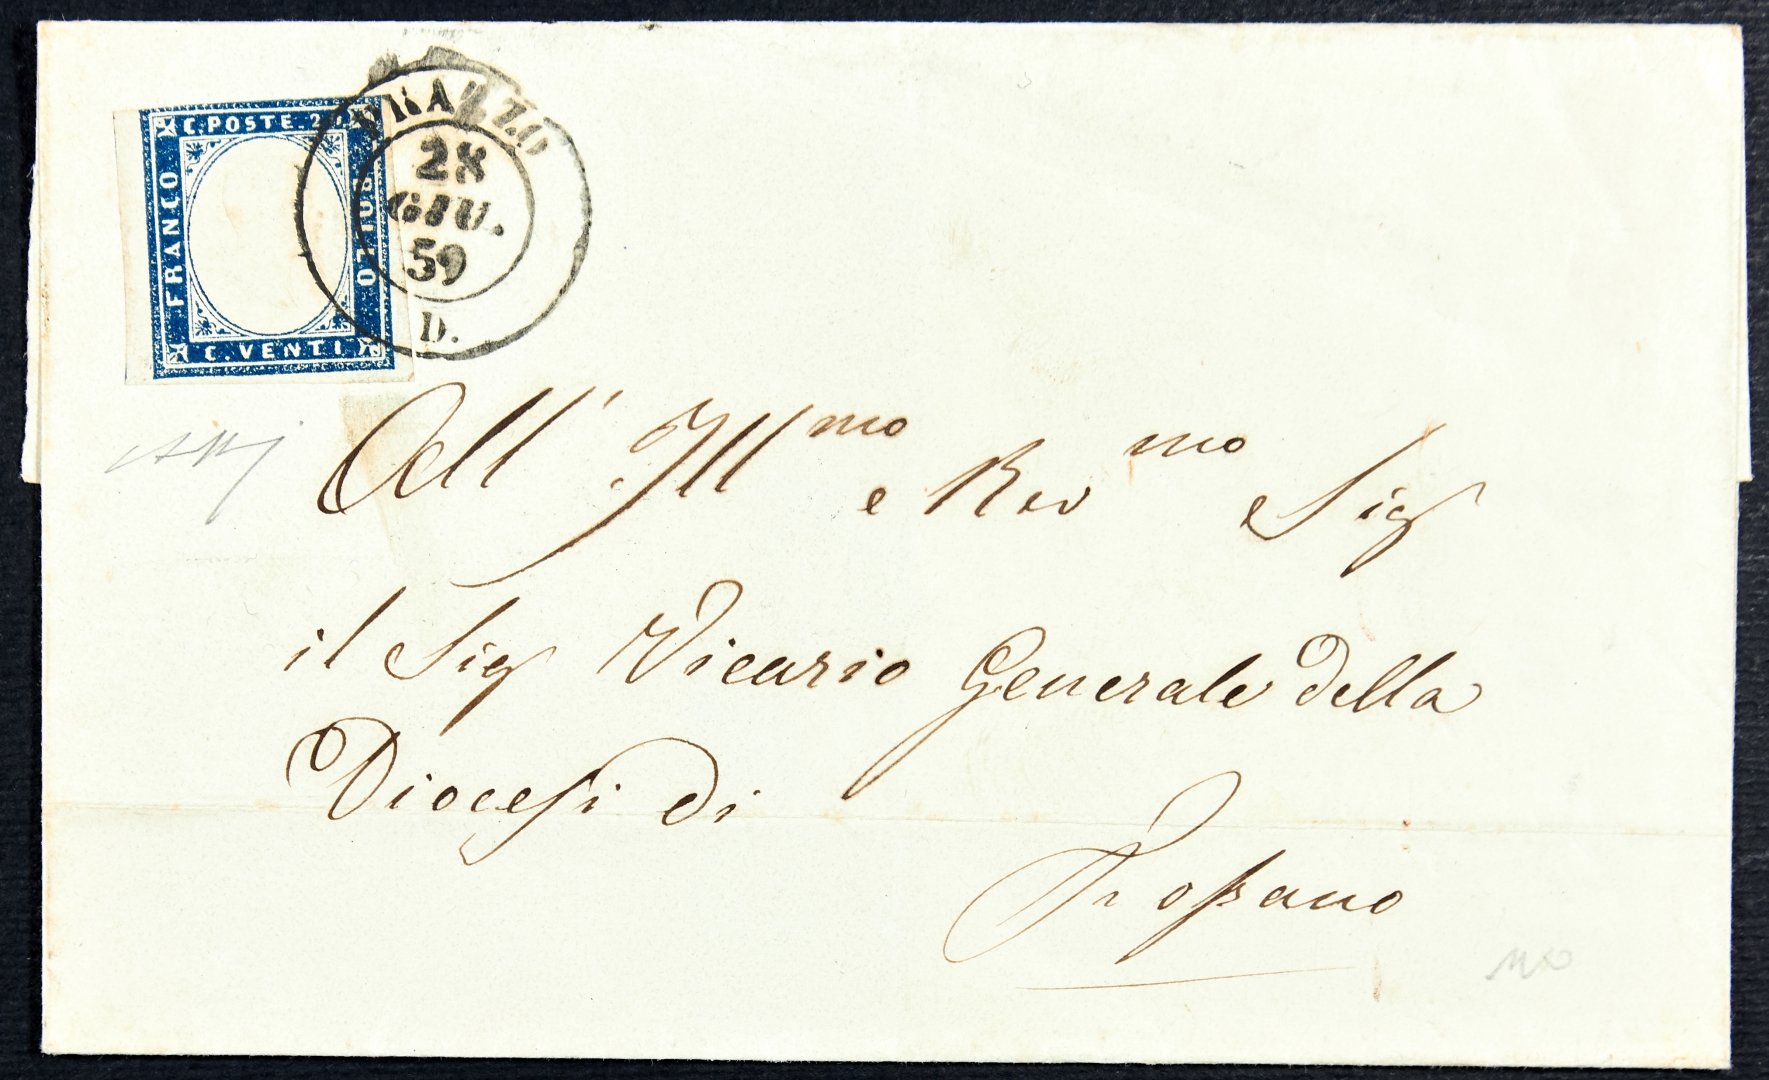 C. POSTE. 20.
FRANCO
BOLLO
C. VENTI.
28
GIU.
59
D.
All' Ill mo e Rev mo Sig
il Sig Vicario Generale della
Diocesi di
Fossano